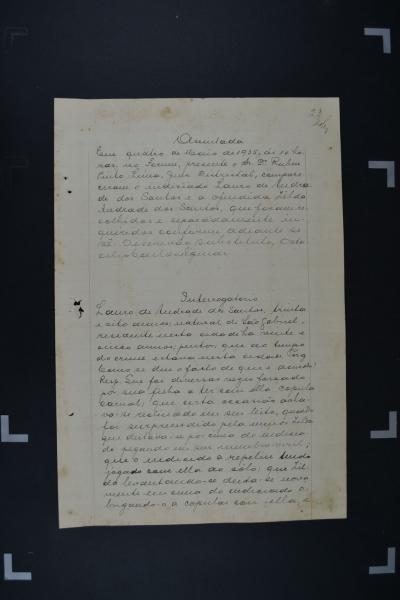 23
Assentada
Em quatro de Março de 1938, ás 14 ho-
ras, no Forum, presente o Sr. Dr. Ruben
Pinto Lima, Juiz Districtal, compare-
ceram o indiciado Lauro de Andra-
de dos Santos e a offendida
Andrade dos Santos, que foram re-
colhidos e separadamente in-
queridos conforme adiante se
vê. Escrevão Substituto,
Interrogatorio
Lauro de Andrade dos Santos, trinta
e oito annos, natural de São Gabriel,
residente nesta cidade ha vinte e
cinco annos;
do crime estava nesta cidade. Perg.
Como se deu o facto de que é accusado?
Resp. Que foi diversas vezes forçado
por sua filha a ter com ella copula
carnal; que certa occasião estava-
va-se recostado em seu leito, quando
foi surprehendido pela menor
que deitava-se por cima do indicia-
do pegando em seu membro viril;
que o indiciado a repeliu tendo
jogado com ella ao sólo; que
levantando-se deita-se nova-
mente em cima do indiciado o-
brigando-o a copular com ella, e